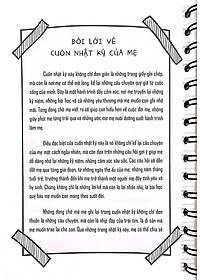 ĐÔI LỜI VỀ
CUỐN NHẬT KÝ CỦA MẸ
Cuốn nhật ký này không chỉ đơn giản là những trang giấy ghi chép,
mà còn là nơi mẹ có thể mở lòng, kể lại những câu chuyện quý giá từ cuộc
sống của mình. Đây là hành trình đầy cảm xúc, nơi mẹ truyền lại những
kỷ niệm, những bài học và cả những yêu thương mà mẹ muốn con ghi nhớ
mãi. Từng dòng chữ mẹ viết ra sẽ giúp con hiểu hơn về cuộc đời mẹ, những
giây phút mẹ từng trải qua và những ước mơ mẹ nuôi dưỡng suốt hành trình
làm mẹ.
Điều đặc biệt của cuốn nhật ký này là nó không chỉ kể lại câu chuyện
của mẹ một cách ngẫu nhiên, mà còn dựa trên những câu hỏi gợi ý giúp mẹ
dễ dàng nhớ lại những kỷ niệm, những cảm xúc sâu sắc. Các câu hỏi sẽ dẫn
dắt mẹ qua từng giai đoạn, từ những ngày thơ ấu của mẹ, những năm tháng
tuổi trẻ, trưởng thành đến khi mẹ trở thành một người mẹ đầy tình yêu và
hy sinh. Chúng không chỉ là những lời kể mà còn là lời nhắn nhủ, là bài học
quý báu mẹ muốn con mang theo suốt đời.
Những dòng chữ mà mẹ ghi lại trong cuốn nhật ký này không chỉ đơn
thuần là những câu chuyện, mà còn là nhịp đập của trái tim, là di sản mà
mẹ muốn trao lại cho con. Qua những trang nhật ký này, mẹ có thể chia sẻ